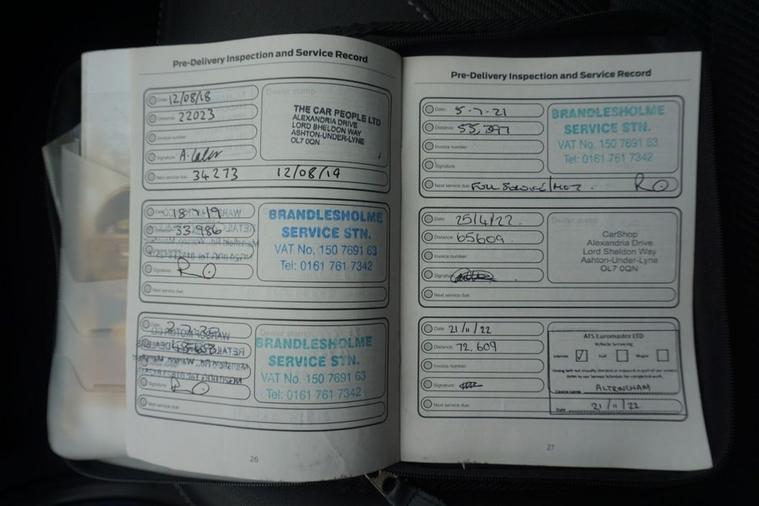 Pre-Delivery Inspection and Service Record
Date: 12/08/18
Distance: 22023
Invoice number
Signature
Next service due: 34273 12/08/19
Dealer stamp
THE CAR PEOPLE LTD
ALEXANDRIA DRIVE
LORD SHELDON WAY
ASHTON-UNDER-LYNE
OL7 0QN
Date: 18.7.19
33,986
Signature R O
Next service due
BRANDLESHOLME
SERVICE STN.
VAT No. 150 7691 63
Tel: 0161 761 7342
Signature R O
Next service due
Dealer stamp
BRANDLESHOLME
SERVICE STN.
VAT No. 150 7691 63
Tel: 0161 761 7342
26
Pre-Delivery Inspection and Service Record
Date: 5.7.21
Distance: 55,397
Invoice number
Signature
Next service due: Full Service/MOT. R O
BRANDLESHOLME
SERVICE STN.
VAT No. 150 7691 63
Tel: 0161 761 7342
Date: 25/4/22
Distance: 65609
Invoice number
Signature
Next service due
Dealer stamp
CarShop
Alexandria Drive
Lord Sheldon Way
Ashton-Under-Lyne
OL7 0QN
Date: 21/11/22
Distance: 72,609
Invoice number
Signature
Next service due
ATS Euromaster LTD
Vehicle Servicing
Interim Full Major
ALTRINCHAM
Date 21/11/22
27